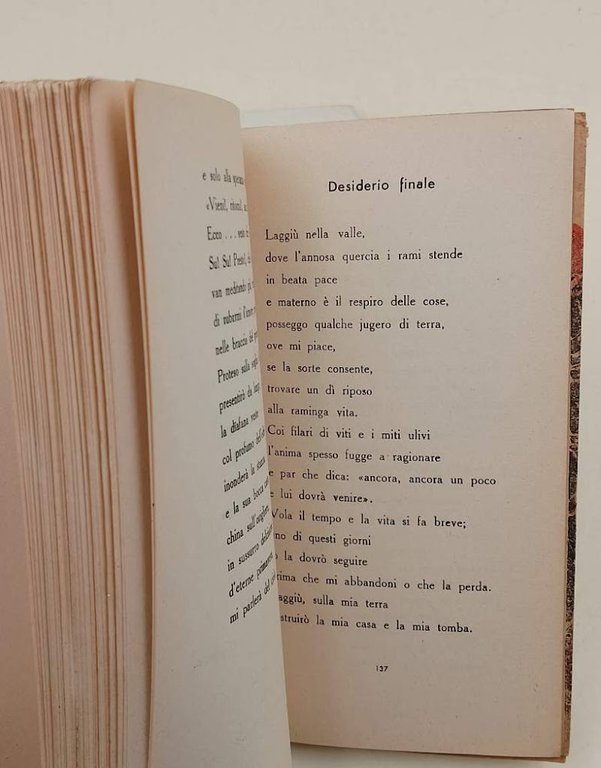 e solo alla
«Vieni!, ritorni!,
Ecco . . .
Su! Su! Presto!,
van meditando
di rubarmi l'amore
nelle braccia
Proteso sulla
presentirò da
la diafana veste
col profumo
inonderà la
e la sua bocca
china sull'
in sussurro
d'eterne
mi parlerà del
Desiderio finale
Laggiù nella valle,
dove l'annosa quercia i rami stende
in beata pace
e materno è il respiro delle cose,
posseggo qualche jugero di terra,
ove mi piace,
se la sorte consente,
trovare un dì riposo
alla raminga vita.
Coi filari di viti e i miti ulivi
l'anima spesso fugge a ragionare
e par che dica: «ancora, ancora un poco
e lui dovrà venire».
Vola il tempo e la vita si fa breve;
uno di questi giorni
la dovrò seguire
prima che mi abbandoni o che la perda.
Laggiù, sulla mia terra
costruirò la mia casa e la mia tomba.
137